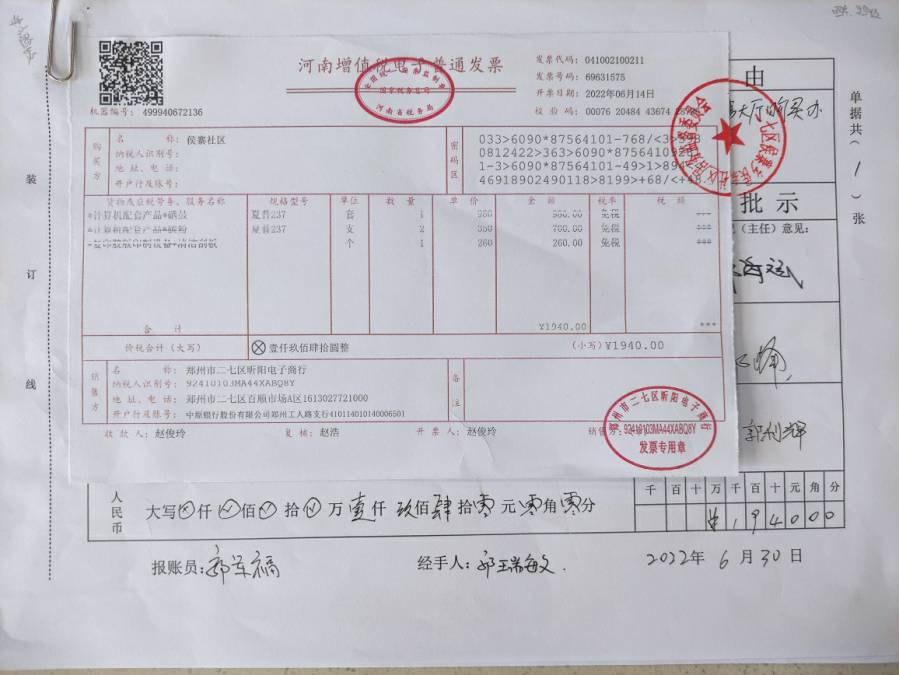 河南增值税电子普通发票
全国统一发票监制章
国家税务总局
河南省税务局
发票代码: 041002100211
发票号码: 69631575
开票日期: 2022年06月14日
校验码: 00076 20484 43674
机器编号: 499940672136
购买方
名称: 侯寨社区
纳税人识别号:
地址、电话:
开户行及账号:
密码区
033>6090*87564101-768/<3>598
0812422>363>6090*8756410928
1-3>6090*87564101-49>1>894
46918902490118>8199>+68/<+48
货物或应税劳务、服务名称 规格型号 单位 数量 单价 金额 税率 税额
*计算机配套产品*硒鼓 夏普237 套 1 980 980.00 免税 ***
*计算机配套产品*碳粉 夏普237 支 2 350 700.00 免税 ***
*复印胶版印制设备*清洁刮板 个 1 260 260.00 免税 ***
合计 ¥1940.00 ***
价税合计（大写） ⊗壹仟玖佰肆拾圆整 （小写）¥1940.00
销售方
名称: 郑州市二七区昕阳电子商行
纳税人识别号: 92410103MA44XABQ8Y
地址、电话: 郑州市二七区百顺市场A区1613027721000
开户行及账号: 中原银行股份有限公司郑州工人路支行410114010140006501
备注
收款人: 赵俊玲 复核: 赵浩 开票人: 赵俊玲 销售方
郑州市二七区昕阳电子商行
92410103MA44XABQ8Y
发票专用章
由
大厅购买办
批示
（主任）意见:
单据共（1）张
装
订
线
人民币
大写⊗仟⊗佰⊗拾⊗万壹仟玖佰肆拾零元零角零分
千百十万千百十元角分
¥194000
报账员: 经手人: 2022年6月30日